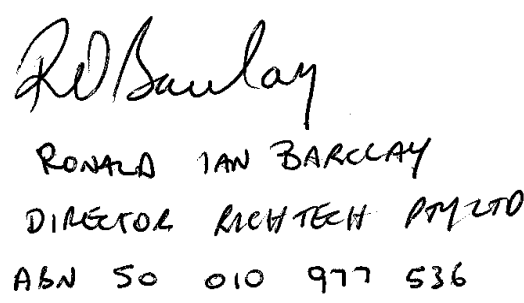 RD Barclay
RONALD IAN BARCLAY
DIRECTOR RICHTECH PTY LTD
ABN 50 010 977 536